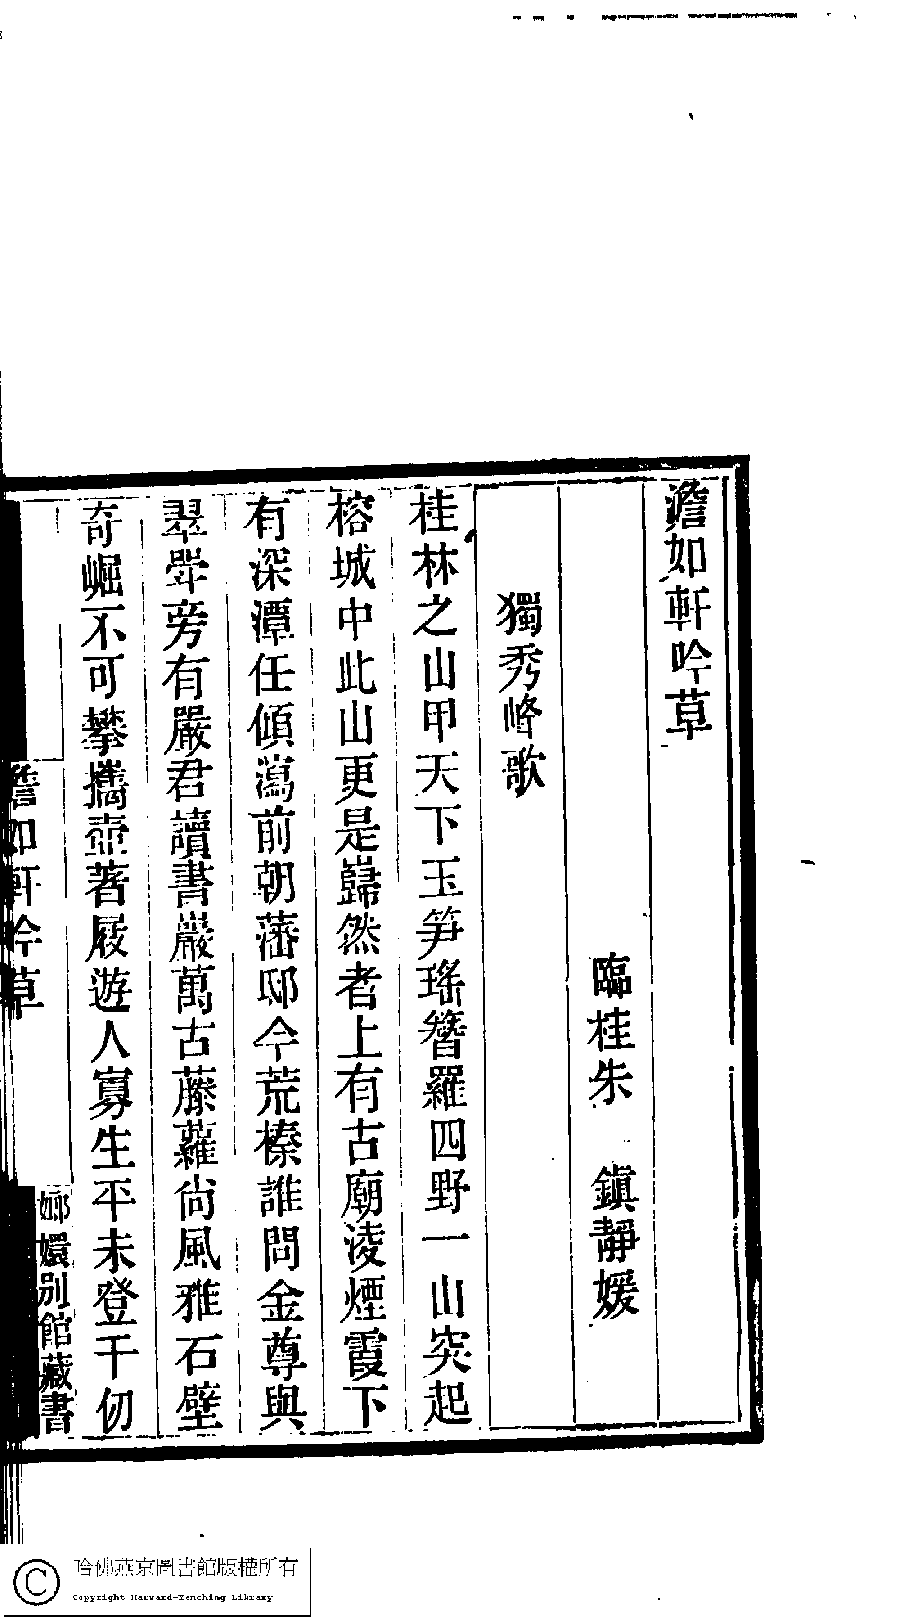 澹如軒吟草
臨桂朱　鎮靜媛
獨秀峰歌
桂林之山甲天下玉笋瑤簪羅四野一山突起
榕城中此山更是巋然者上有古廟淩煙霞下
有深潭任傾瀉前朝藩邸今荒榛誰問金尊與
翠斝旁有嚴君讀書巖萬古藤蘿尙風雅石壁
奇崛不可攀攜壺著屐遊人寡生平未登千仞
澹如軒吟草
嫏嬛別館藏書
哈佛燕京圖書館版權所有
Copyright Harvard-Yenching Library